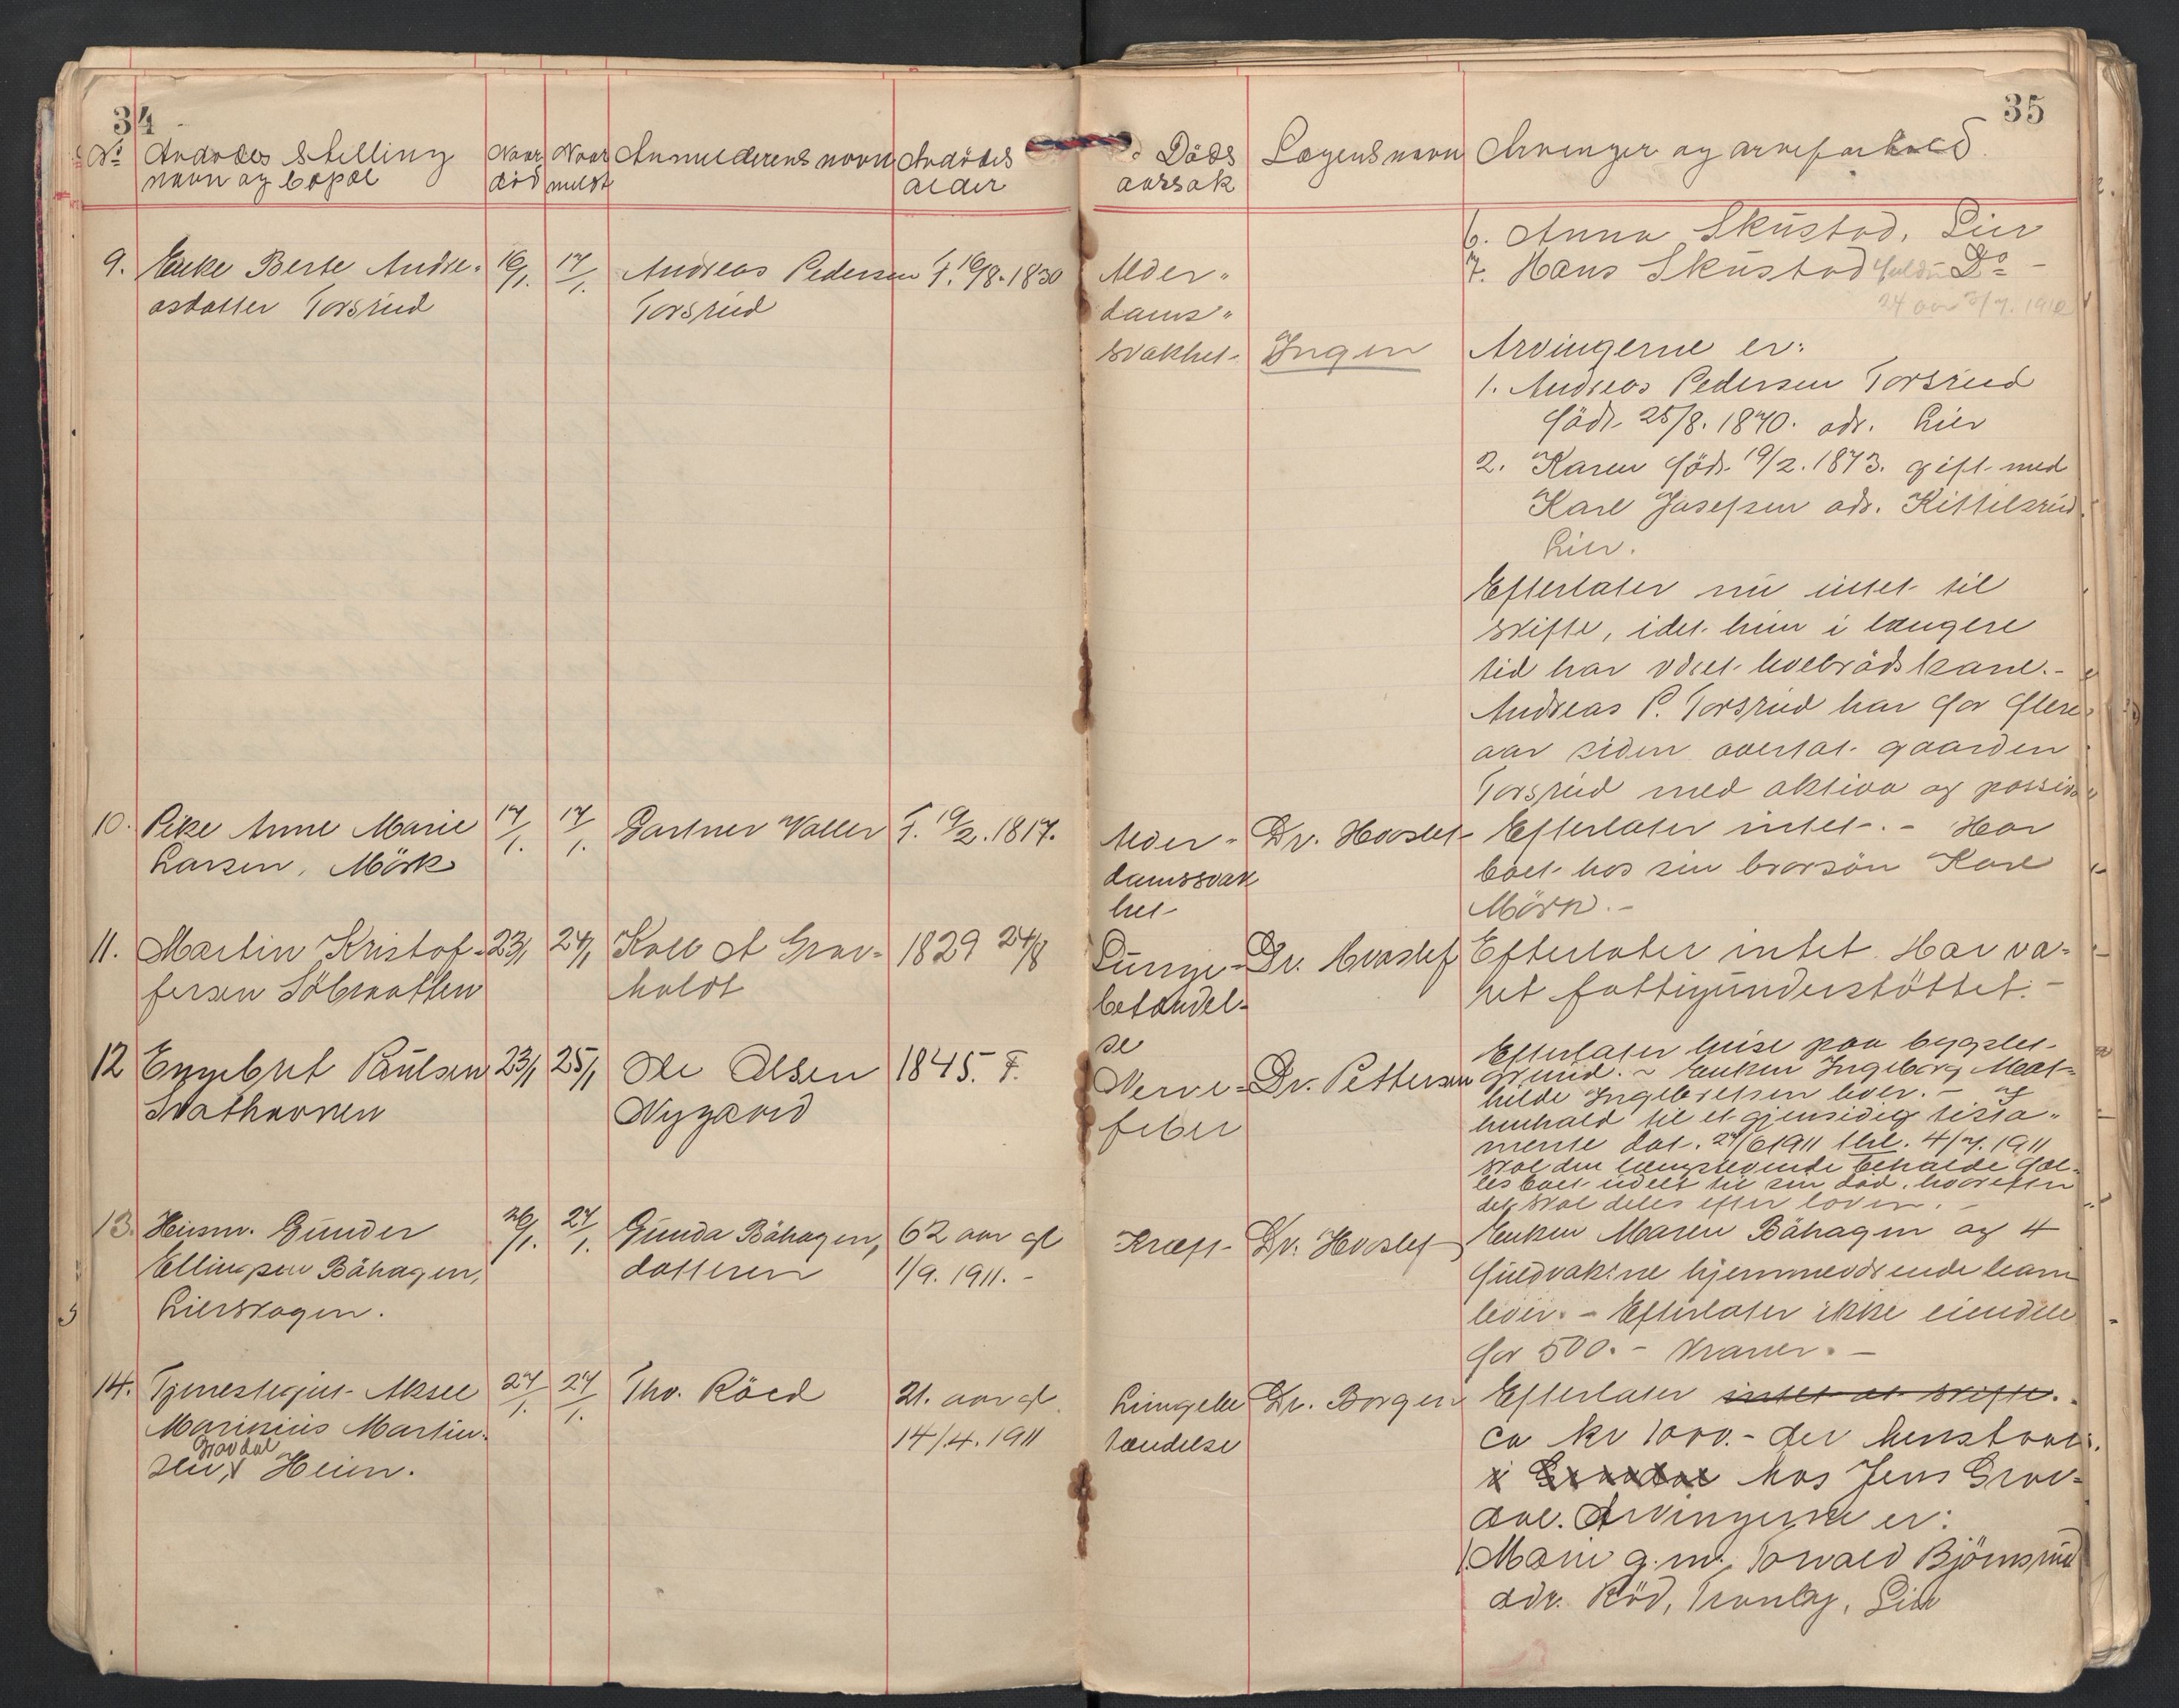 34
35
No Avdödes Stilling navn og bopæl
Naar död
Naar meldt
Anmelderens navn
Avdödes alder
Döds aarsak
Lægens navn
Arvinger og arveforhold
6. Anna Skustad, Lier
7. Hans Skustad fuldt Do -
24 aar 5/7. 1912
9. Enke Berte Andre-
asdatter Torsrud
16/1.
17/1.
Andreas Pedersen
Torsrud
f. 16/8. 1830
Alder-
doms-
svakhet
Ingen
Arvingerne er:
1. Andreas Pedersen Torsrud
född 25/8. 1870. adr. Lier
2. Karen född 19/2. 1873. gift med
Karl Josefsen adr. Kittilsrud
Lier.
Efterlater nu intet til
skifte, idet hun i længere
tid har været hoelsrådskane.-
Andreas P. Torsrud har for flere
aar siden overtat gaarden
Torsrud med aktiva og passiva
10. Pike Anne Marie
Larsen, Mörk
17/1.
17/1.
Gartner Waller
f. 19/2. 1817.
Alder-
domssvak
het
Dr. Hvoslef
Efterlater intet. - Har
boet hos sin brorsön Karl
Mörk. -
11. Martin Kristof-
fersen Söbraatten
23/1
24/1
Koll A Grav-
holdt
1829 24/8
Lunge-
betændel-
se
Dr. Hvoslef
Efterlater intet. Har væ-
ret fattigunderstöttet. -
12 Engebret Paulsen
Svathavnen
23/1
25/1
Ole Olsen
Nygaard
1845. F.
Nerve-
feber
Dr. Pettersen
Efterlater huse paa bygslet
grund. - Enken Ingeborg Mat-
hilde Ingebretsen lever. - I
henhold til et gjensidig testa-
mente dat. 27/6 1911 thl. 4/7. 1911
skal den længstlevende beholde fæl-
les boet udelt til sin död, hvorefter
det skal deles efter loven. -
13. Husm. Gunder
Ellingsen Båhagen,
Lierskogen.
26/1.
27/1.
Gunda Båhagen,
datteren
62 aar gl
1/9. 1911. -
Kræft
Dr. Hvoslef
Enken Maren Båhagen og 4
fuldvaksne hjemmeværende barn
lever. - Efterlater ikke eiendele
for 500. - kroner. -
14. Tjenestegut Aksel
Marinius Martin-
sen, Grovdal Heien.
27/1.
27/1.
Tho. Röed
21. aar gl.
14/4. 1911
Lungebe
tændelse
Dr. Borgen
Efterlater intet at skifte.
ca kr 1000. - der henstaar
i Grovdal hos Jens Grov-
dal. Arvingerne er:
1. Marie g. m. Torvald Björnsrud
adr. Röd, Tranby, Lier